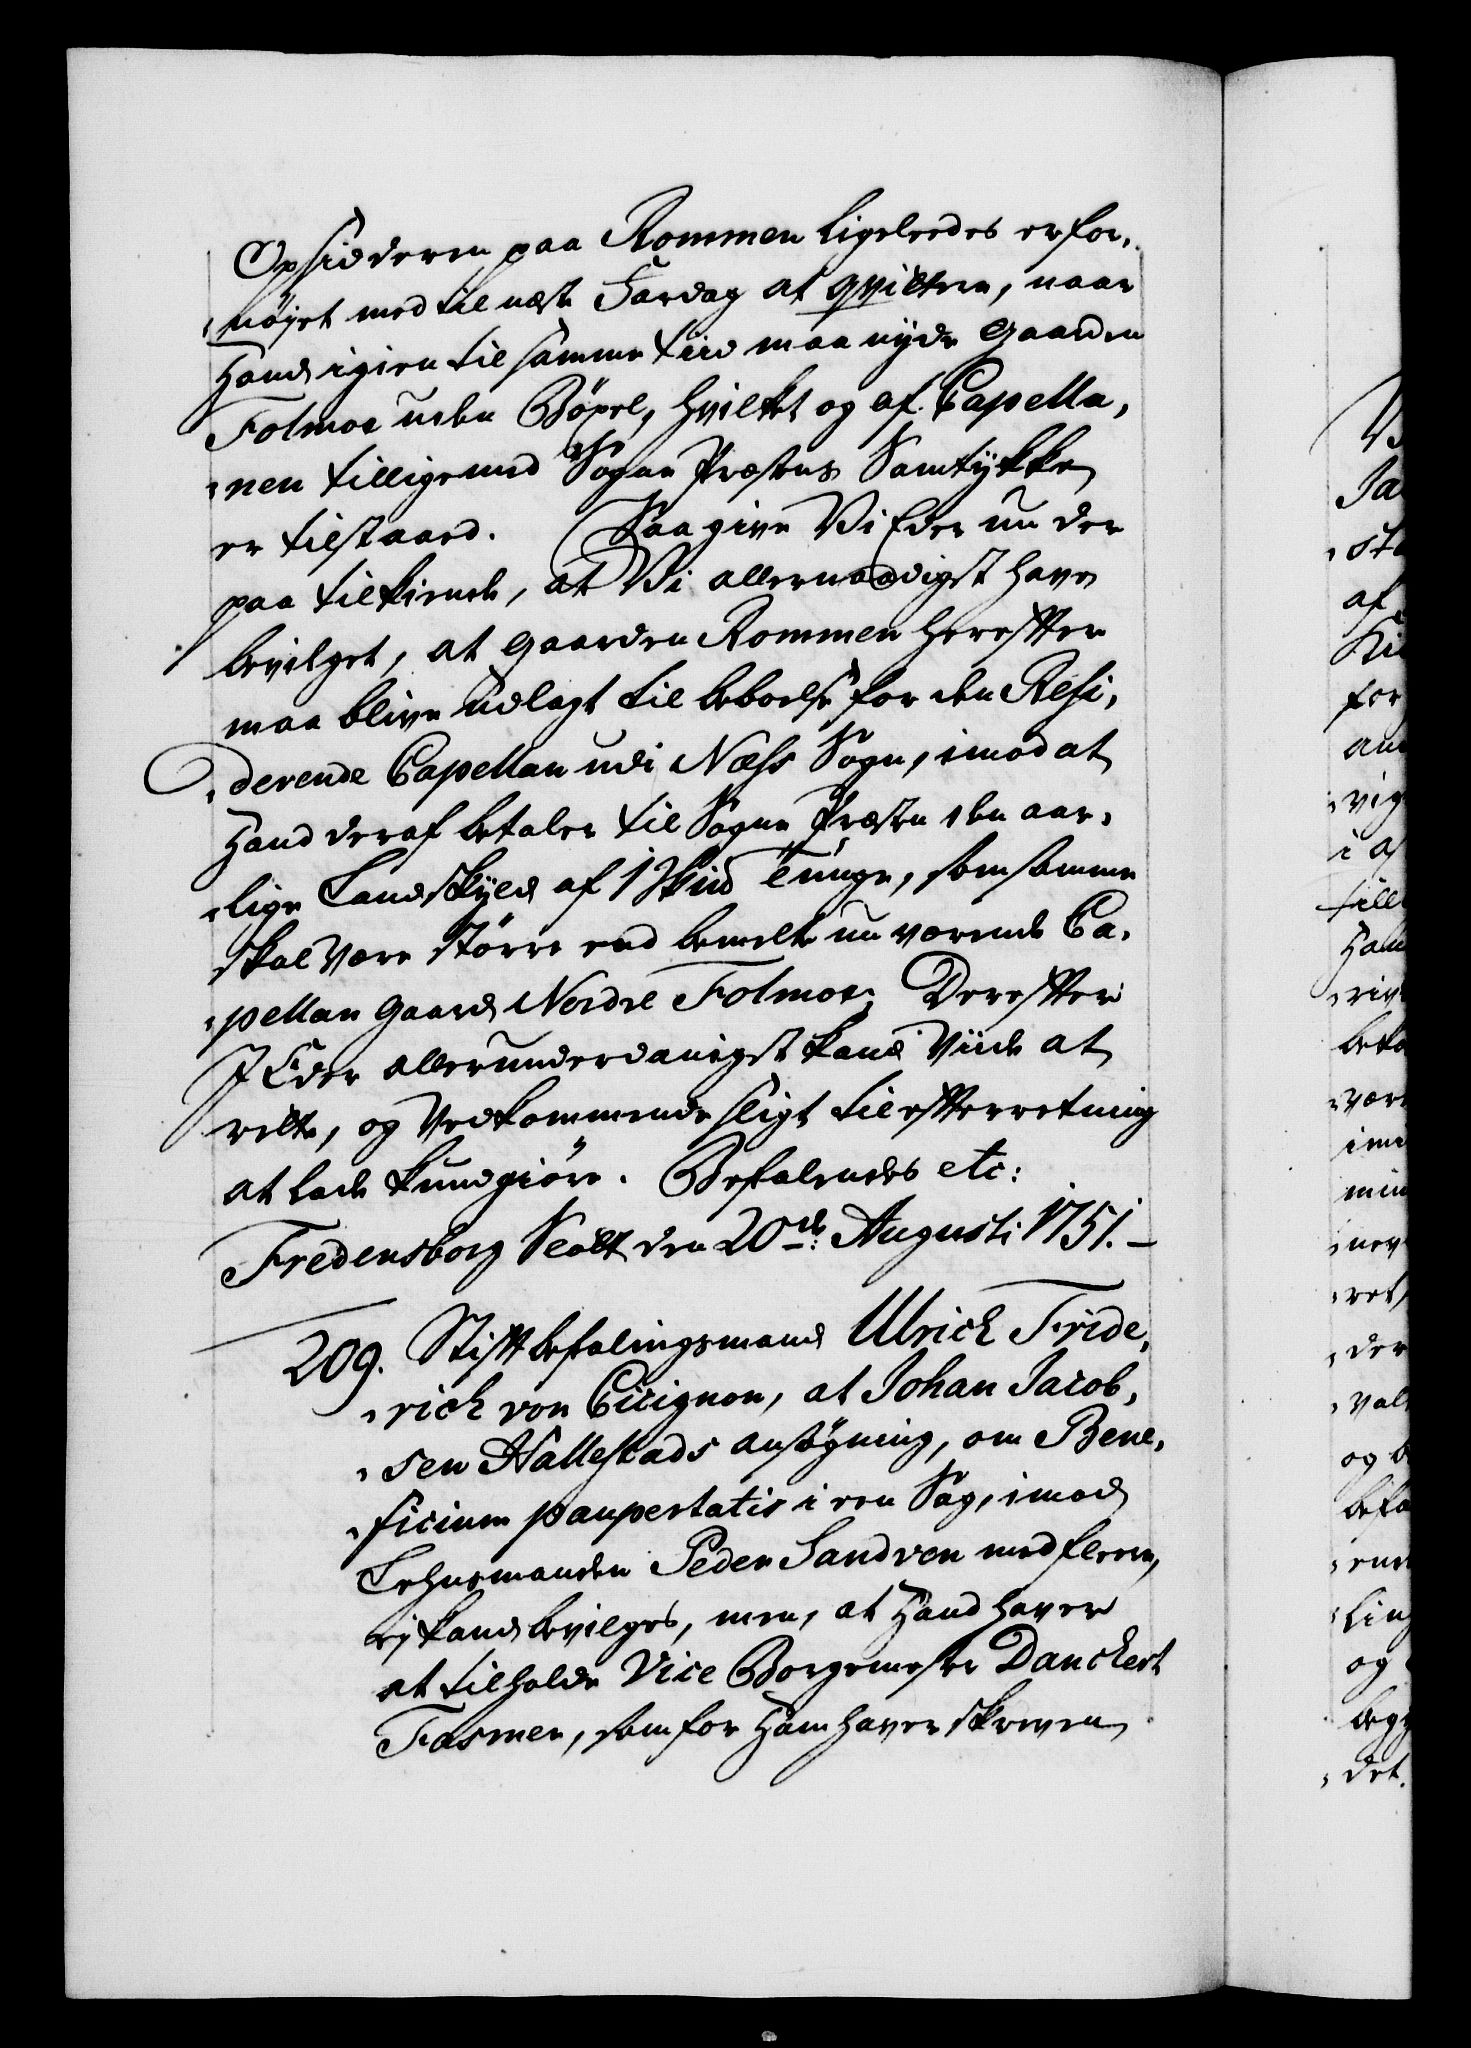 Opsidderen paa Rommen ligeleedes er for¬
nöyet med til næste Fardag at qvittere, naar
Hand igien til samme tiid maa nyde Gaarden
Folmoe uden Böxel, hvilket og af Capella¬
nen tilligemed Sogne Præstens Samtykke
er tilstaaed. Saa give Vi Eder nu der
paa tilkiende, at Vi allernaadigst have
bevilget, at Gaarden Rommen herefter
maa blive udlagt til beboelse for den Resi¬
derende Capellan udi Næss Sogn, imod at
Hand deraf betaler til Sogne Præsten den aar¬
lige Landskyld af 1 Skind Tunge, som samme
skal være större end bemelte nu værende Ca¬
pellan Gaard Nordre Folmoe; Derefter
I Eder allerunderdanigst kand viide at
rette, og Vedkommende sligt til efterretning
at lade kundgiöre. Befalendes etc:
Fredensborg Slott den 20de: Augusti 1751.
209. Stiftbefalingsmand Ulrich Fride¬
rich von Cicignon, at Johan Jacob¬
sen Hallestads ansögning, om Bene¬
ficium paupertatis i een Sag, imod
Lehnsmanden Peder Sandven med fleere,
ej kand bevilges, men, at Hand haver
at tilholde Vice Borgemester Danckert
Fasmer, som for Ham haver skreven